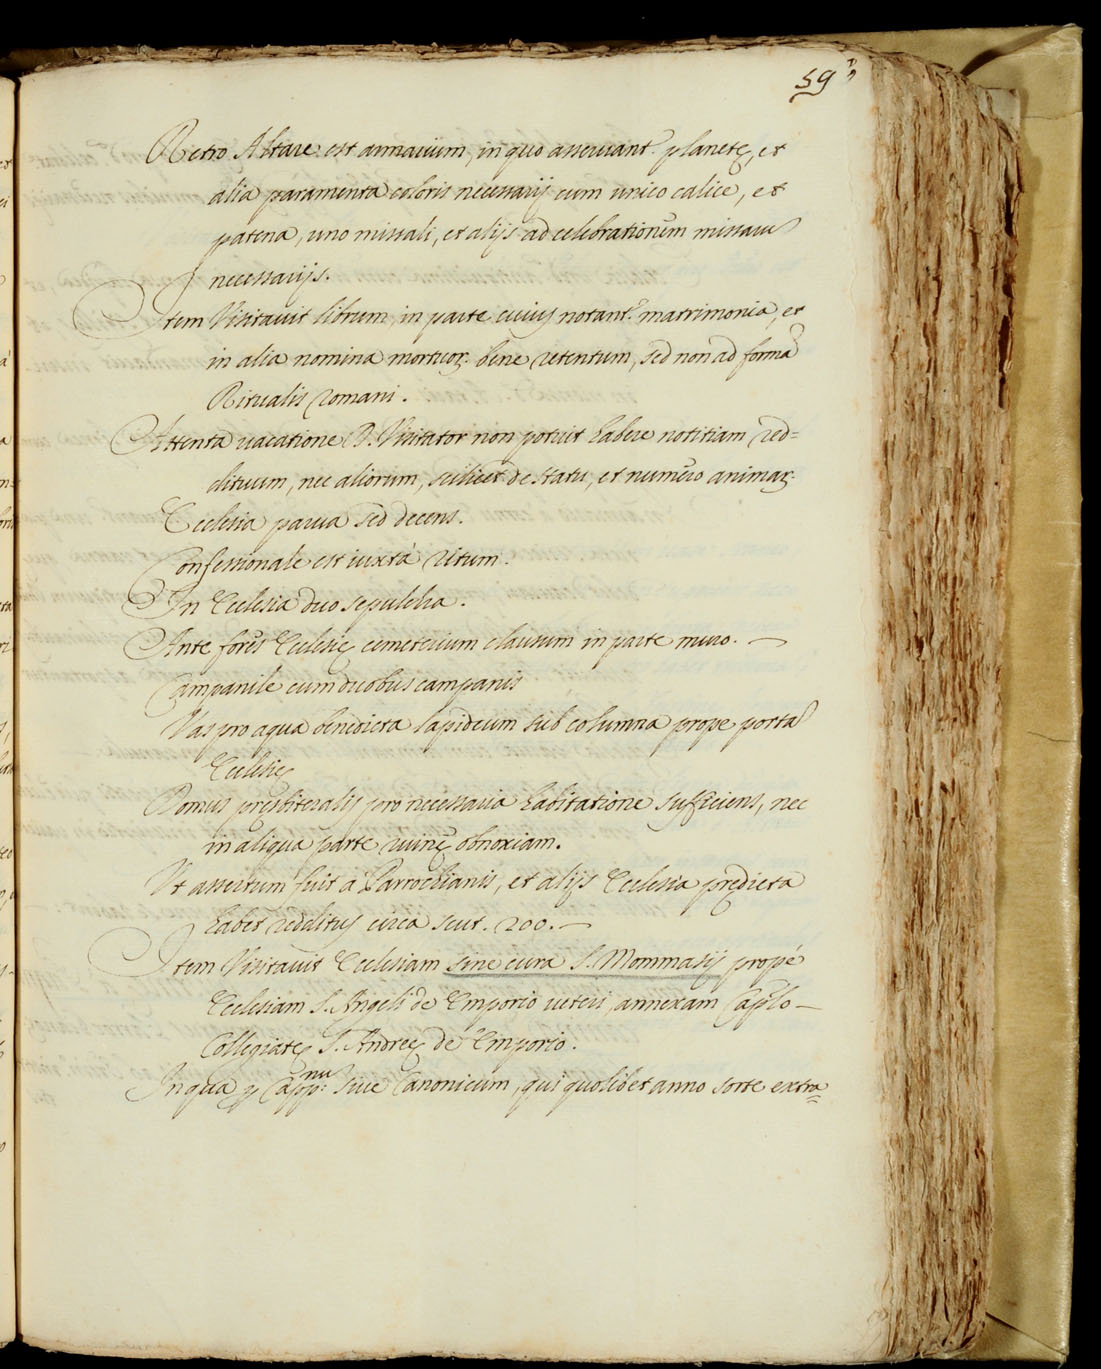 59
Retro Altare est armarium, in quo asservant. planetę, et
alia paramenta coloris necessarij cum unico calice, et
patena, uno missali, et alijs ad celebrationem missarũ
necessarijs.
Item Visitavit librum, in parte cuius notant.r matrimonia, et
in alia nomina mortuor. bene retentum, sed non ad formã
Ritualis romani.
Attenta vacatione D. Visitator non potuit habere notitiam red=
dituum, nec aliorum, scilicet de statu, et numero animar.
Ecclesia parua sed decens.
Confessionale est iuxtà ritum.
In Ecclesia duo sepulchra.
Ante fores Ecclesię cemeterium clausum in parte muro. —
Campanile cum duobus campanis
Vas pro aqua benedicta lapideum sub columna prope portã
Ecclesię
Domus presbiteralis pro necessaria habitatione sufficiens, nec
in aliqua parte ruinę obnoxiam.
Vt assertum fuit à Parrochianis, et alijs Ecclesia prędicta
habet redditus circa scut. 200. —
Item Visitavit Ecclesiam sine cura S. Mommasij propè
Ecclesiam S. Angeli de Emporio veteri, annexam Caplo —
Collegiatę S. Andreę de Emporio.
In qua p Capp.num siue Canonicum, qui quolibet anno sorte extra=